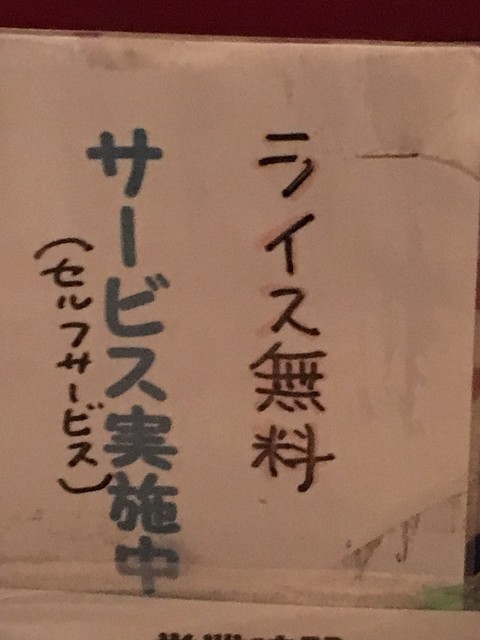 ライス無料
サービス実施中
(セルフサービス)